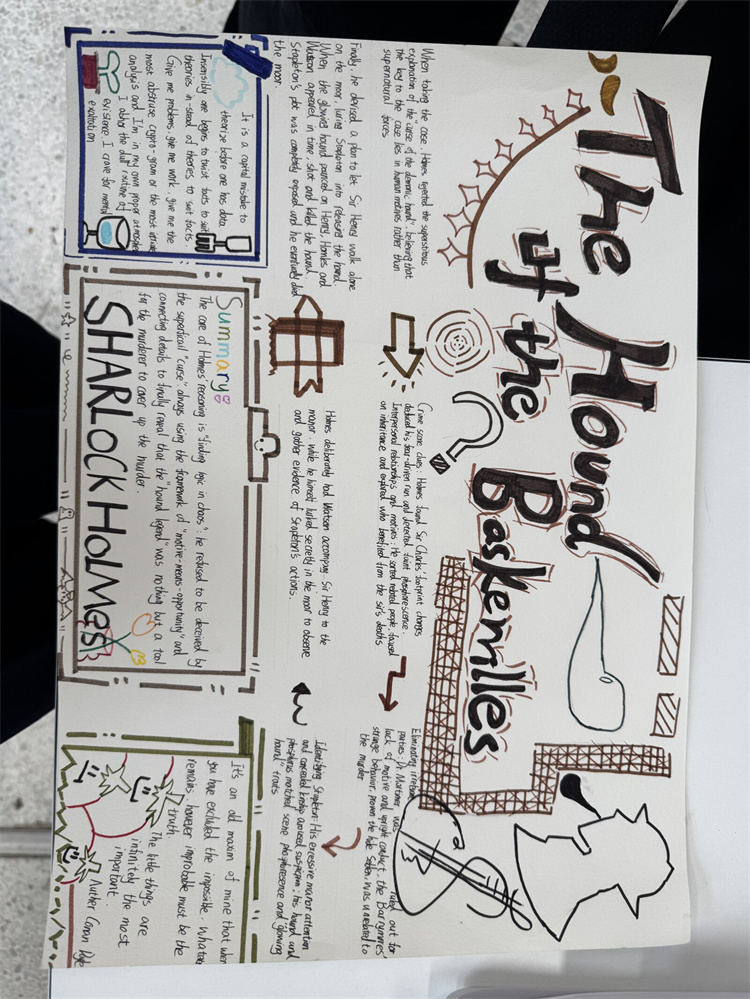 The Hound
of the Baskervilles
When taking the case, Holmes rejected the superstitious
explanation of the "curse of the demonic hound", believing that
the key to the case lies in human motives rather than
supernatural forces.
Crime scene clues: Holmes found Sir Charles' footprint changes
deduced his fear-driven run and detected faint phosphorescence.
Interpersonal relationships and motives: He sorted related people, focused
on inheritance and explored who benefited from the sir's deaths
Eliminating
parties: Dr Mortimer was ruled out for
lack of motive and upright conduct, the Barrymores'
strange behavior, proven the hide Selden, was unrelated to
the murder
Identifying Stapleton: His excessive manor attention
and concealed kinship aroused suspicion; his hound and
phosphorus matched scene phosphorescence and "glowing
hound" traits
Holmes deliberately had Watson accompany Sir Henry to the
manor, while he himself lurked secretly in the moor to observe
and gather evidence of Stapleton's actions.
Finally, he devised a plan to let Sir Henry walk alone
on the moor, luring Stapleton into releasing the hound
When the glowing hound pounced on Henry, Holmes and
Watson appeared in time, shot and killed the hound
Stapleton's plot was completely exposed and he eventually died
the moor.
It is a capital mistake to
theorize before one has data.
Insensibly one begins to twist facts to suit
theories in-stead of theories to suit facts.
Give me problems, give me work, give me the
most abstruse crypto-gram or the most intricate
analysis and I'm in my own proper atmosphere
I abhor the dull routine of
existence I crave for mental
exaltation
Summary
The core of Holmes' reasoning is "finding logic in chaos": he refused to be deceived by
the superficail "curse" always using the framework of "motive-means-opportunity" and
connecting details to finally reveal that the "hound legend" was nothing but a tool
for the murderer to cover up the murder.
SHARLOCK HOLMES
It's an old maxim of mine that when
you have excluded the impossible, whatever
remains, however improbable must be the
truth.
The little things are
infinitely the most
important.
Auther Conan Doyle